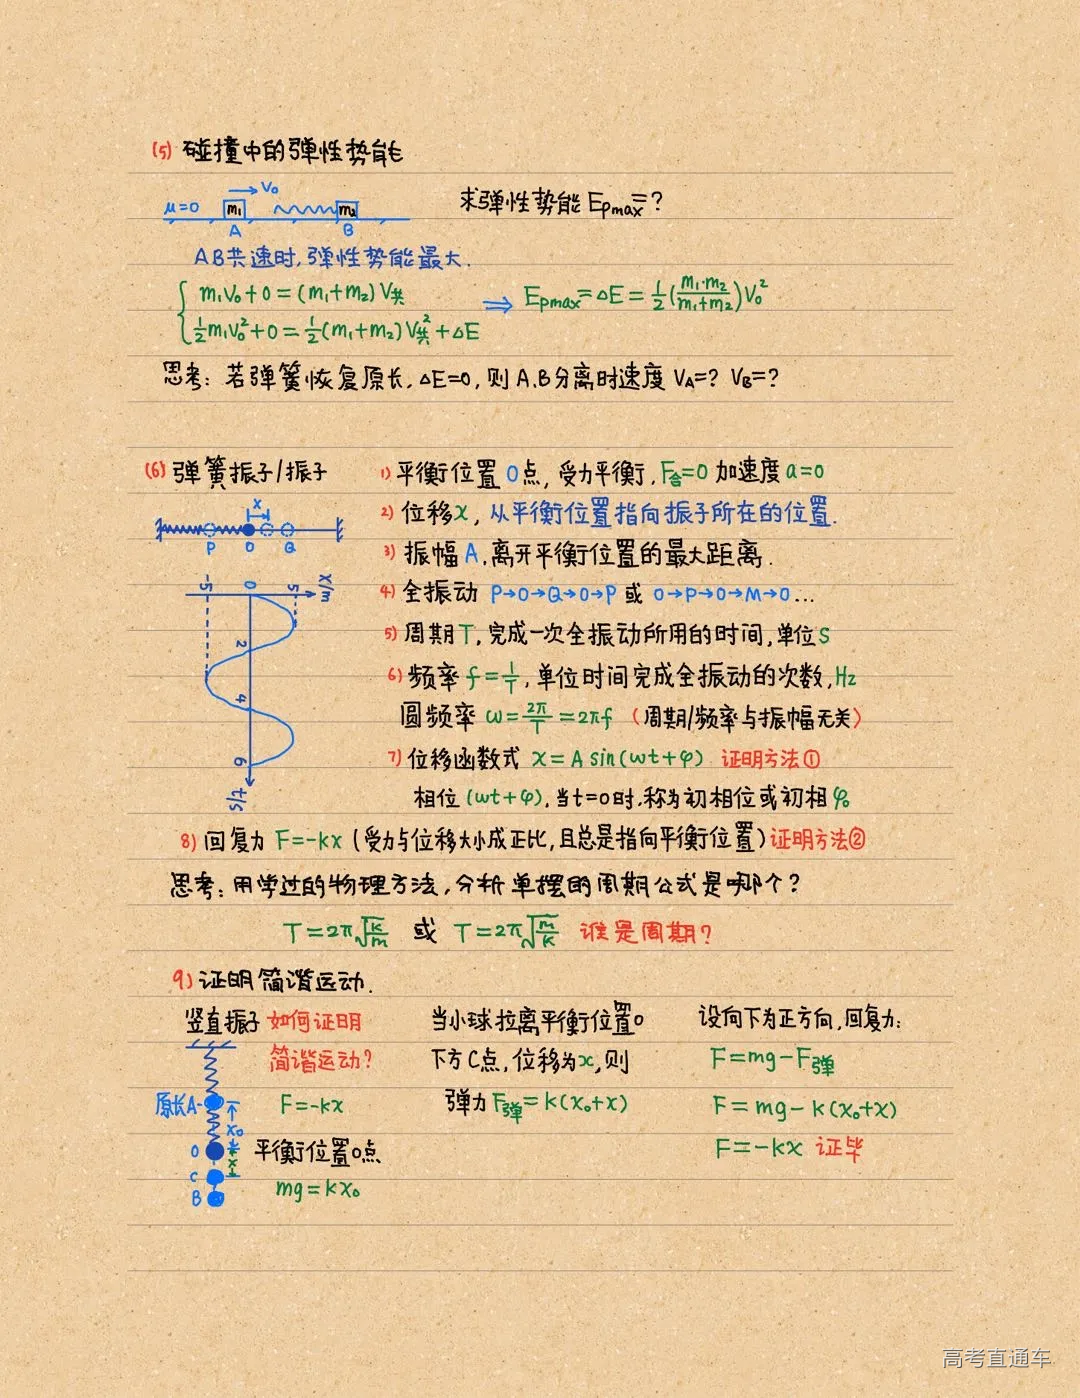 (5) 碰撞中的弹性势能
μ=0 m₁ V₀ m₂ 求弹性势能 Epmax=?
A B
AB共速时,弹性势能最大.
m₁V₀+0=(m₁+m₂)V共 ⇒ Epmax=ΔE=½(m₁·m₂/m₁+m₂)V₀²
½m₁V₀²+0=½(m₁+m₂)V共²+ΔE
思考: 若弹簧恢复原长, ΔE=0, 则A.B分离时速度 VA=? VB=?
(6) 弹簧振子/振子
x
P O Q
-5 0 5 x/m
2
4
6
t/s
1) 平衡位置 O点, 受力平衡, F合=0 加速度 a=0
2) 位移x, 从平衡位置指向振子所在的位置.
3) 振幅 A, 离开平衡位置的最大距离.
4) 全振动 P→O→Q→O→P 或 O→P→O→M→O...
5) 周期T, 完成一次全振动所用的时间, 单位S
6) 频率 f=1/T, 单位时间完成全振动的次数, Hz
圆频率 ω=2π/T=2πf (周期/频率与振幅无关)
7) 位移函数式 x=A sin(ωt+φ) 证明方法①
相位(ωt+φ), 当t=0时, 称为初相位或初相φ₀
8) 回复力 F=-kx (受力与位移大小成正比, 且总是指向平衡位置) 证明方法②
思考: 用学过的物理方法, 分析单摆的周期公式是哪个?
T=2π√k/m 或 T=2π√m/k 谁是周期?
9) 证明简谐运动.
竖直振子 如何证明
简谐运动?
原长A
x₀
O
x
C
B
F=-kx
平衡位置O点
mg=kx₀
当小球拉离平衡位置O
下方C点, 位移为x, 则
弹力F弹=k(x₀+x)
设向下为正方向, 回复力:
F=mg-F弹
F=mg-k(x₀+x)
F=-kx 证毕
高考直通车